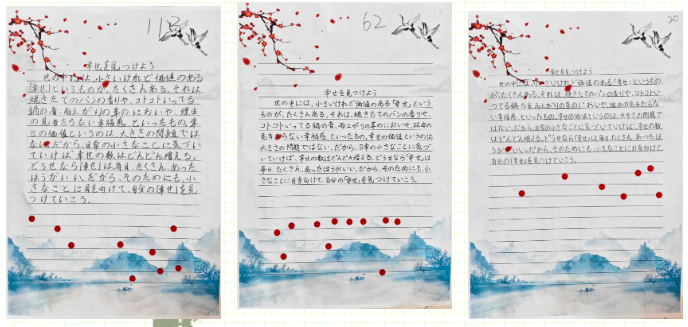 113
幸せを見つけよう
世の中には、小さいけれど価値のある
「幸せ」というものが、たくさんある。それは、
焼きたてのパンの香りや、コトコトいってる
鍋の音、雨上がりの草のにおいや、理由
の見当たらない幸福感、といったもの。幸
せの価値というのは、大きさの問題では
ない。だから、日常の小さなことに気づい
ていけば、幸せの数はどんどん増える。
どうせなら「幸せ」は毎日、たくさん、あった
ほうがいい。だから、そのためにも、小
さなことに目を向けて、自分の「幸せ」を見
つけていこう。
62
幸せを見つけよう
世の中には、小さいけれど価値のある「幸せ」という
ものが、たくさんある。それは、焼きたてのパンの香りや、
コトコトいってる鍋の音、雨上がりの草のにおいや、理由の
見当たらない幸福感、といったもの。幸せの価値というのは
大きさの問題ではない。だから、日常の小さなことに気づい
ていけば、幸せの数はどんどん増える。どうせなら「幸せ」は
毎日、たくさん、あったほうがいい。だから、そのためにも、小
さなことに目を向けて、自分の「幸せ」を見つけていこう。
20
幸せを見つけよう
世の中には、小さいけれど価値のある「幸せ」というもの
が、たくさんある。それは、焼きたてのパンの香りや、コトコトいっ
てる鍋の音、雨上がりの草のにおいや、理由の見当たらな
い幸福感、といったもの。幸せの価値というのは、大きさの問題で
はない。だから、日常の小さなことに気づいていけば、幸せの数
はどんどん増える。どうせなら「幸せ」は毎日、たくさん、あったほ
うがいい。だから、そのためにも、小さなことに目を向けて、
自分の「幸せ」を見つけていこう。